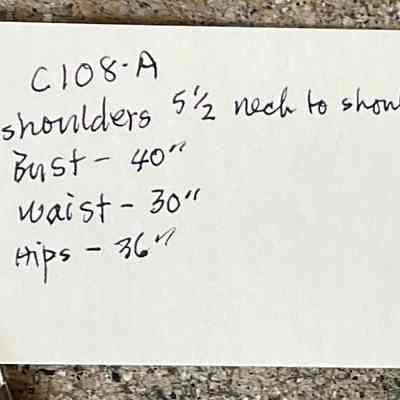 C108-A
shoulders 5 1/2 neck to shou
Bust - 40"
Waist - 30"
Hips - 36"